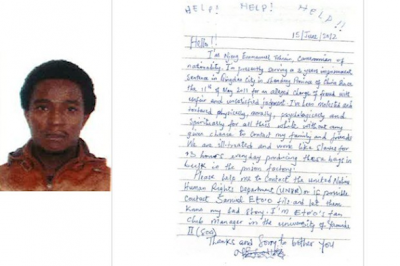 HELP! HELP! HELP!!
15/June/2012
Hello!!
I'm Njong Emmanuel Tohnain, Cameroonian of
nationality. I'm presently serving a 3 years imprisonment
sentence in Qingdao City in Shandong Province of China since
the 11th of May 2011 for an alleged charge of fraud with
unfair and unlawful judgment. I've been molested and
tortured physically, morally, psychologically and
spiritually for all this while without any
given chance to contact my family and friends
We are ill-treated and work like slaves for
13 hours everyday producing these bags in
bulk in the prison factory.
Please help me to contact the united Nations
Human Rights Department (UNHR) or if possible
contact Samuel Eto'o fils and let them
know my sad story. I'm Eto'o's fan
club manager in the University of Yaounde
II (SOA)
Thanks and Sorry to bother you